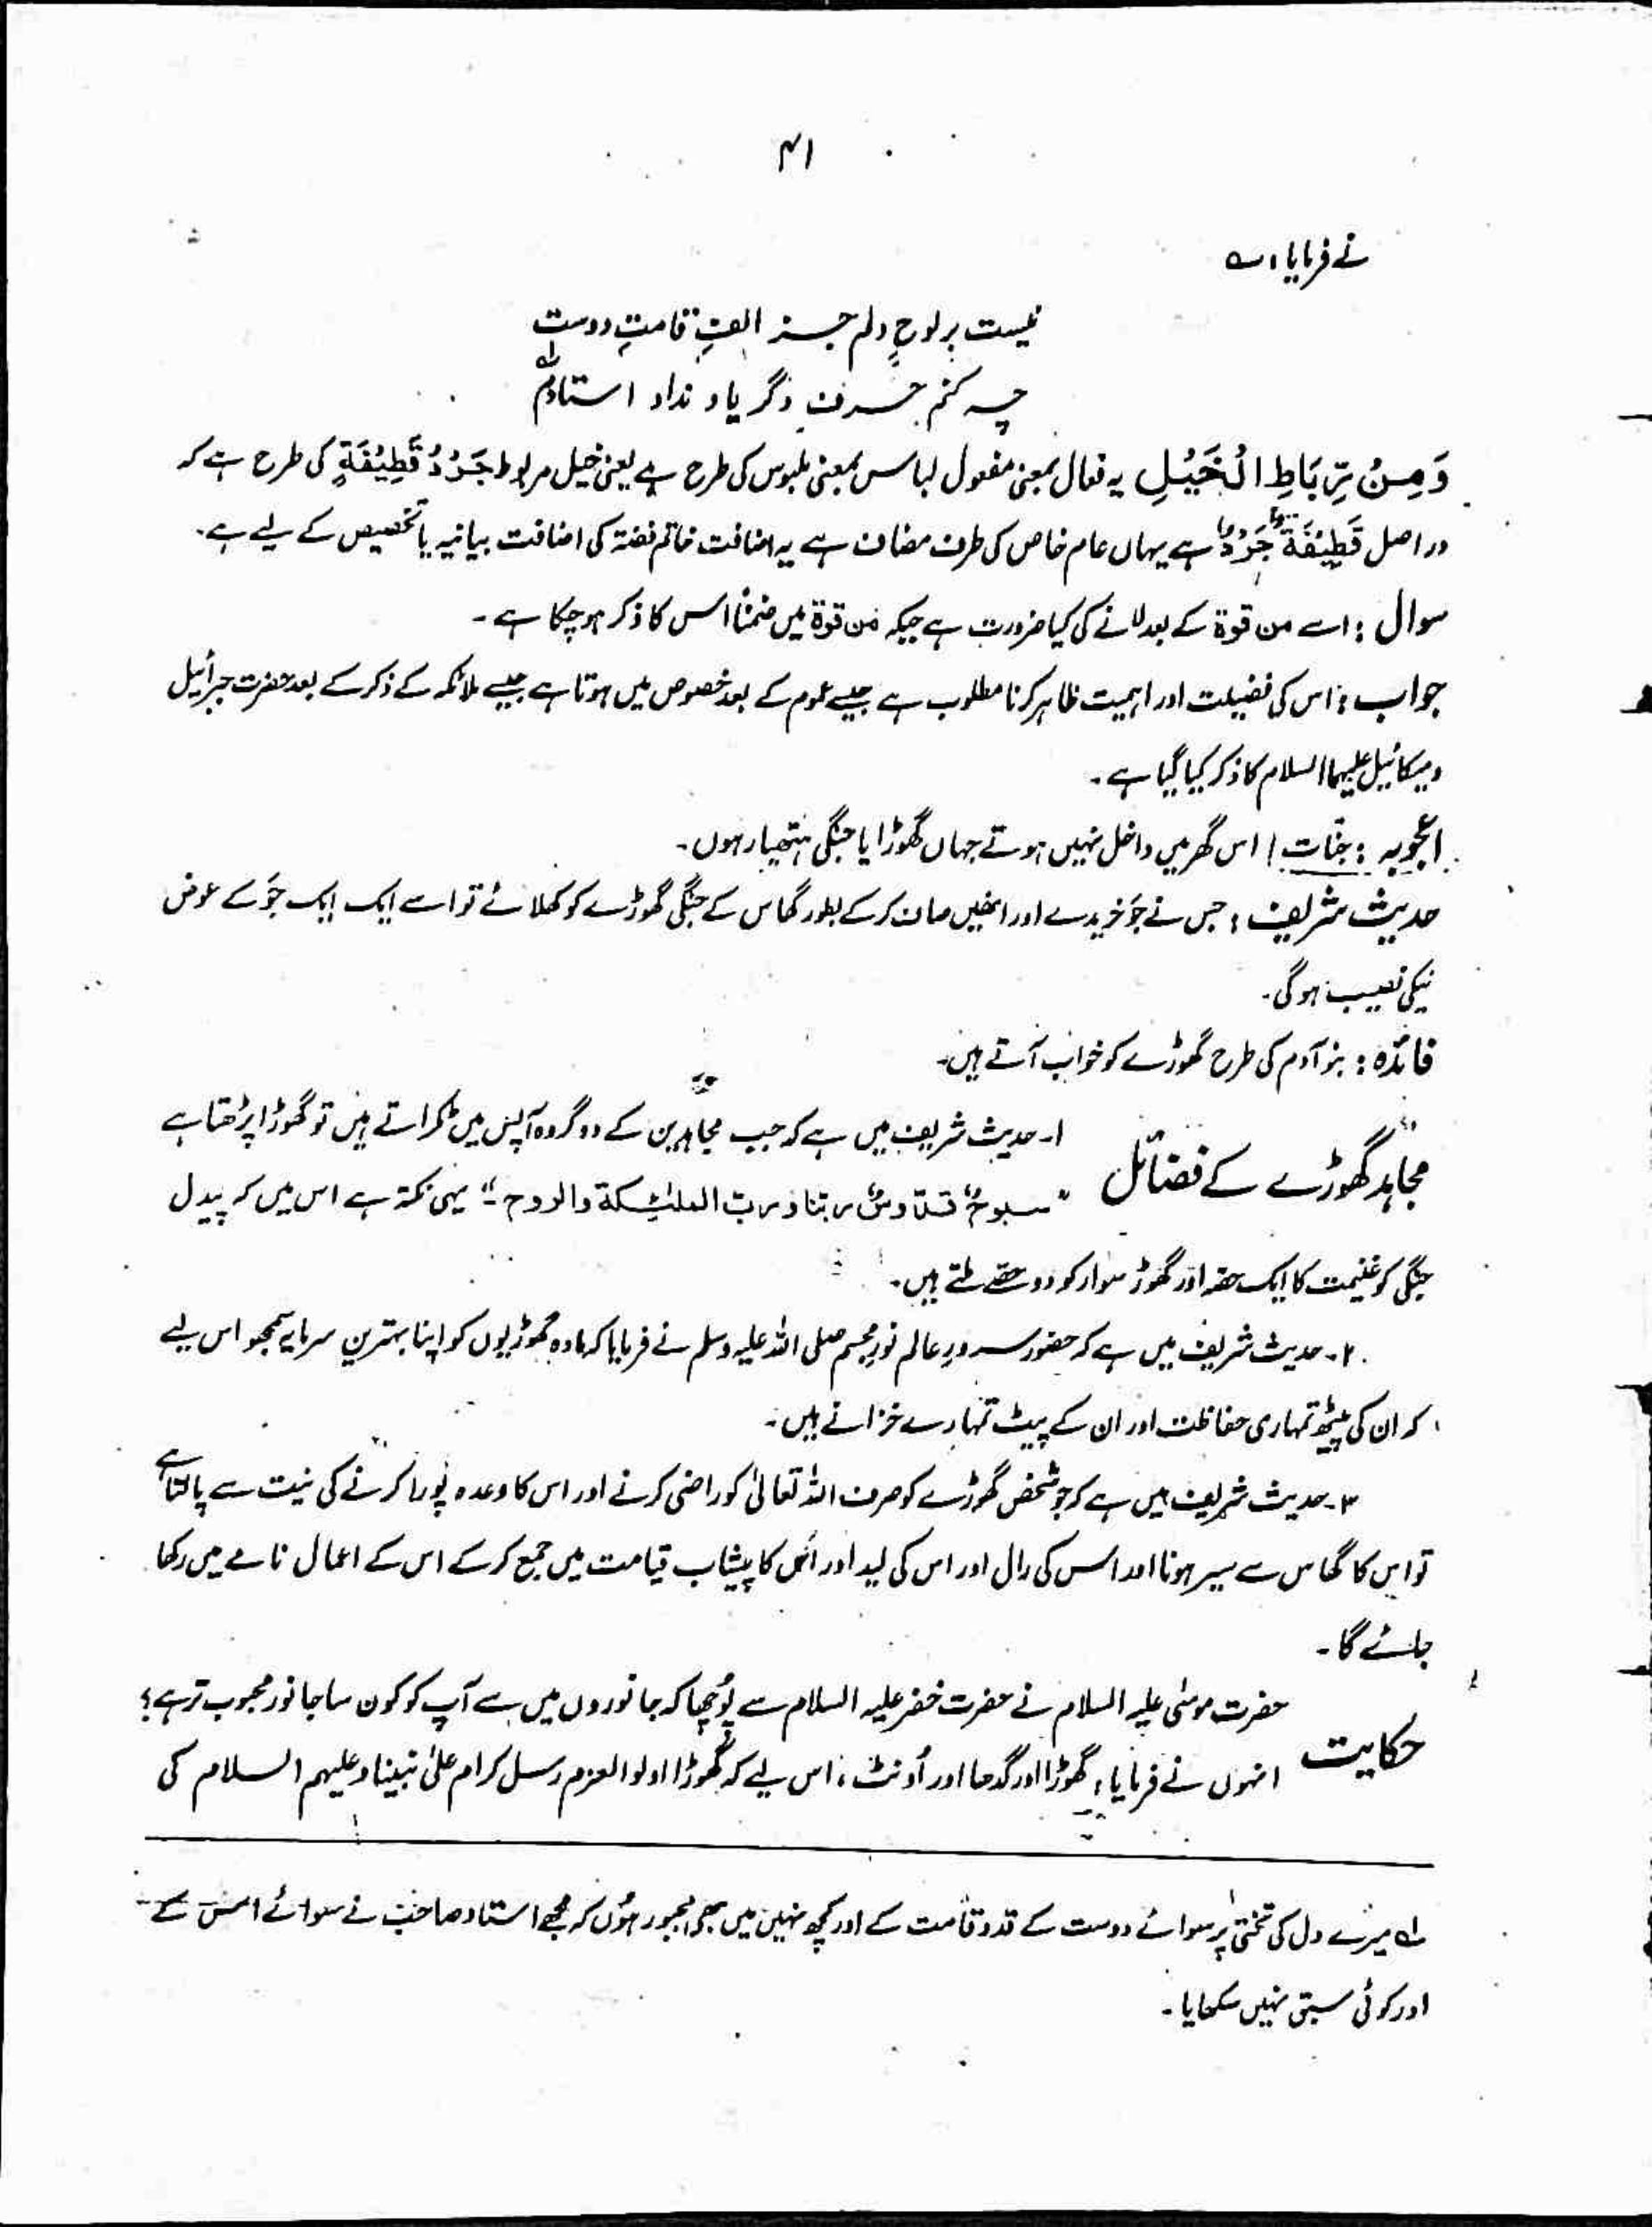 ۴۱
نے فرمایا، ؎
نیست بر لوحِ دلم جز الفِ قامتِ دوست
چہ کنم حرف دگر یاد نداد استادم لہ
وَمِنْ رِّبَاطِ الْخَيْلِ یہ فعال بمعنی مفعول لباس بمعنی ملبوس کی طرح ہے یعنی خیل مربوط جَرْدُ قَطِيْفَةٍ کی طرح ہے کہ
دراصل قَطِيْفَةٌ جَرْدٌ ہے یہاں عام خاص کی طرف مضاف ہے یہ اضافت خاتم فضۃ کی اضافت بیانیہ یا تخصیص کے لیے ہے۔
سوال : اسے من قوۃ کے بعد لانے کی کیا ضرورت ہے جبکہ من قوۃ میں ضمناً اس کا ذکر ہو چکا ہے۔
جواب : اس کی فضیلت اور اہمیت ظاہر کرنا مطلوب ہے جیسے عموم کے بعد خصوص میں ہوتا ہے جیسے ملائکہ کے ذکر کے بعد حضرت جبرائیل
و میکائیل علیہما السلام کا ذکر کیا گیا ہے۔
اعجوبہ : جنّات اس گھر میں داخل نہیں ہوتے جہاں گھوڑا یا جنگی ہتھیار ہوں۔
حدیث شریف : جس نے جَو خریدے اور انھیں صاف کر کے بطور گھاس کے جنگی گھوڑے کو کھلائے تو اسے ایک ایک جَو کے عوض
نیکی نصیب ہوگی۔
فائدہ : بنو آدم کی طرح گھوڑے کو خواب آتے ہیں۔
مجاہد گھوڑے کے فضائل
۱۔ حدیث شریف میں ہے کہ جب مجاہدین کے دو گروہ آپس میں ٹکراتے ہیں تو گھوڑا پڑھتا ہے
"سبوحٌ قدّوسٌ ربنا و رب الملٰئکة والروح ۔" یہی نکتہ ہے اس میں کہ پیدل
جنگی کو غنیمت کا ایک حصہ اور گھوڑ سوار کو دو حصے ملتے ہیں۔
۲۔ حدیث شریف میں ہے کہ حضور سرورِ عالم نورِ مجسم صلی اللہ علیہ وسلم نے فرمایا کہ مادہ گھوڑیوں کو اپنا بہترین سرمایہ سمجھو اس لیے
کہ ان کی پیٹھ تمہاری حفاظت اور ان کے پیٹ تمہارے خزانے ہیں۔
۳۔ حدیث شریف میں ہے کہ جو شخص گھوڑے کو صرف اللہ تعالیٰ کو راضی کرنے اور اس کا وعدہ پُورا کرنے کی نیت سے پالتا ہے
تو اس کا گھاس سے سیر ہونا اور اس کی رال اور اس کی لید اور اس کا پیشاب قیامت میں جمع کر کے اس کے اعمال نامے میں رکھا
جائے گا۔
حکایت
حضرت موسٰی علیہ السلام نے حضرت خضر علیہ السلام سے پُوچھا کہ جانوروں میں سے آپ کو کون سا جانور محبوب تر ہے؟
انہوں نے فرمایا : گھوڑا اور گدھا اور اُونٹ ، اس لیے کہ گھوڑا اولوالعزم رسل کرام علیٰ نبینا و علیہم السلام کی
لہ میرے دل کی تختی پر سوائے دوست کے قدوقامت کے اور کچھ نہیں میں مجبور ہُوں کہ مجھے استاد صاحب نے سوائے اس کے
اور کوئی سبق نہیں سکھایا۔